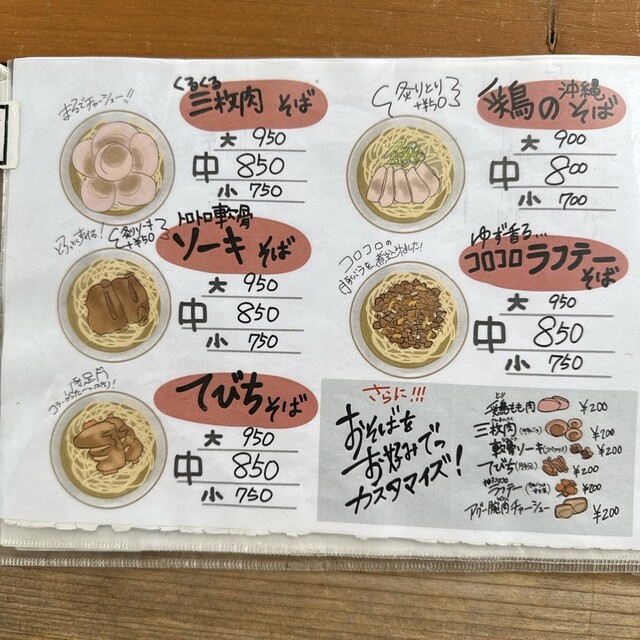 まるでチャーシュー!!
くるくる
三枚肉 そば
大 950
中 850
小 750
炙りとり
+¥50
鶏の沖縄そば
大 900
中 800
小 700
炙りソーキ
+¥50
トロトロ軟骨
ソーキ そば
大 950
中 850
小 750
コロコロの
ゆず香る...
コロコロラフテー
そば
大 950
中 850
小 750
てびち そば
大 950
中 850
小 750
さらに!!!
おそばを
お好みで
カスタマイズ!
鶏もも肉 ¥200
三枚肉 ¥200
軟骨ソーキ ¥200
てびち ¥200
ラフテー ¥200
アグー腕肉チャーシュー ¥200